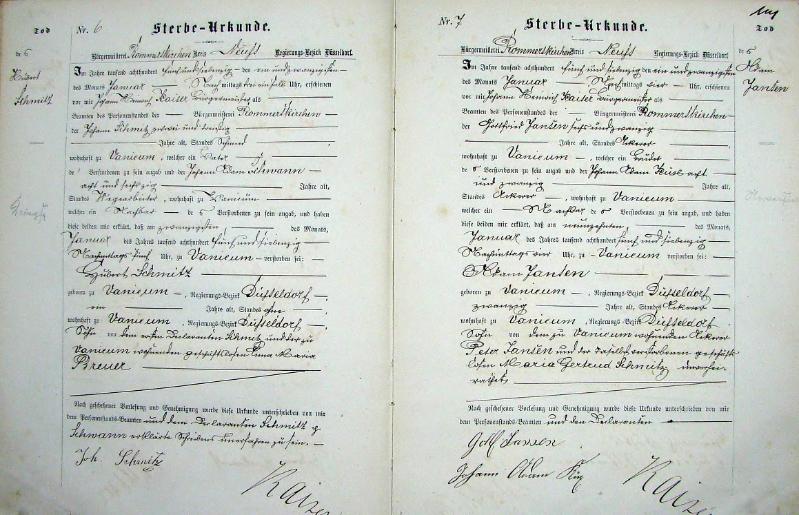 Tod
Nr. 6
Sterbe-Urkunde.
de s
Hubert
Schmitz
Bürgermeisterei Rommerskirchen Kreis Neuß Regierungs-Bezirk Düsseldorf.
Im Jahre tausend achthundert fünf und siebenzig den ein und zwanzigsten
des Monats Januar Nachmittags Uhr, erschienen
vor mir Johann Heinrich Kaiser Bürgermeister als
Beamten des Personenstandes der Bürgermeisterei Rommerskirchen
der Johann Schmitz zwei und dreißig
Jahre alt, Standes Schmied
wohnhaft zu Vanicum, welcher ein Vater
de s Verstorbenen zu sein angab und der Johann Schwann
acht und sechzig Jahre alt,
Standes wohnhaft zu Vanicum
welcher ein Nachbar de s Verstorbenen zu sein angab, und haben
diese beiden mir erklärt, daß am zwanzigsten des Monats,
Januar des Jahres tausend achthundert fünf und siebenzig
Nachmittags fünf Uhr, zu Vanicum verstorben sei:
Hubert Schmitz
geboren zu Vanicum, Regierungs-Bezirk Düsseldorf
ein Jahre alt, Standes ohne
wohnhaft zu Vanicum, Regierungs-Bezirk Düsseldorf,
Sohn von dem ersten Declaranten Schmitz und der zu
Vanicum wohnenden geschäftslosen Anna Maria
Breuer
Nach geschehener Vorlesung und Genehmigung wurde diese Urkunde unterschrieben von mir
dem Personenstands-Beamten und dem Declaranten Schmitz
Schwann erklärte Schreibens unerfahren zu sein.
Joh. Schmitz
Kaiser
Nr. 7
Sterbe-Urkunde.
Tod
de s
Adam
Jansen
Bürgermeisterei Rommerskirchen Kreis Neuß Regierungs-Bezirk Düsseldorf.
Im Jahre tausend achthundert fünf und siebenzig den ein und zwanzigsten
des Monats Januar Nachmittags vier Uhr, erschienen
vor mir Johann Heinrich Kaiser Bürgermeister als
Beamten des Personenstandes der Bürgermeisterei Rommerskirchen
der Gottfried Jansen sechs und zwanzig
Jahre alt, Standes Ackerer
wohnhaft zu Vanicum, welcher ein Bruder
de s Verstorbenen zu sein angab und der Johann Adam acht
und zwanzig Jahre alt,
Standes Ackerer, wohnhaft zu Vanicum
welcher ein Nachbar de s Verstorbenen zu sein angab, und haben
diese beiden mir erklärt, daß am neunzehnten des Monats,
Januar des Jahres tausend achthundert fünf und siebenzig
Nachmittags vier Uhr, zu Vanicum verstorben sei:
Adam Jansen
geboren zu Vanicum, Regierungs-Bezirk Düsseldorf
zwanzig Jahre alt, Standes Ackerer
wohnhaft zu Vanicum, Regierungs-Bezirk Düsseldorf
Sohn von dem zu Vanicum wohnenden Ackerer
Peter Jansen und der daselbst verstorbenen geschäfts-
losen Maria Gertrud Schmitz, unverhei-
rathet
Nach geschehener Vorlesung und Genehmigung wurde diese Urkunde unterschrieben von mir
dem Personenstands-Beamten und den Declaranten
Gottf Jansen
Johann Adam
Kaiser